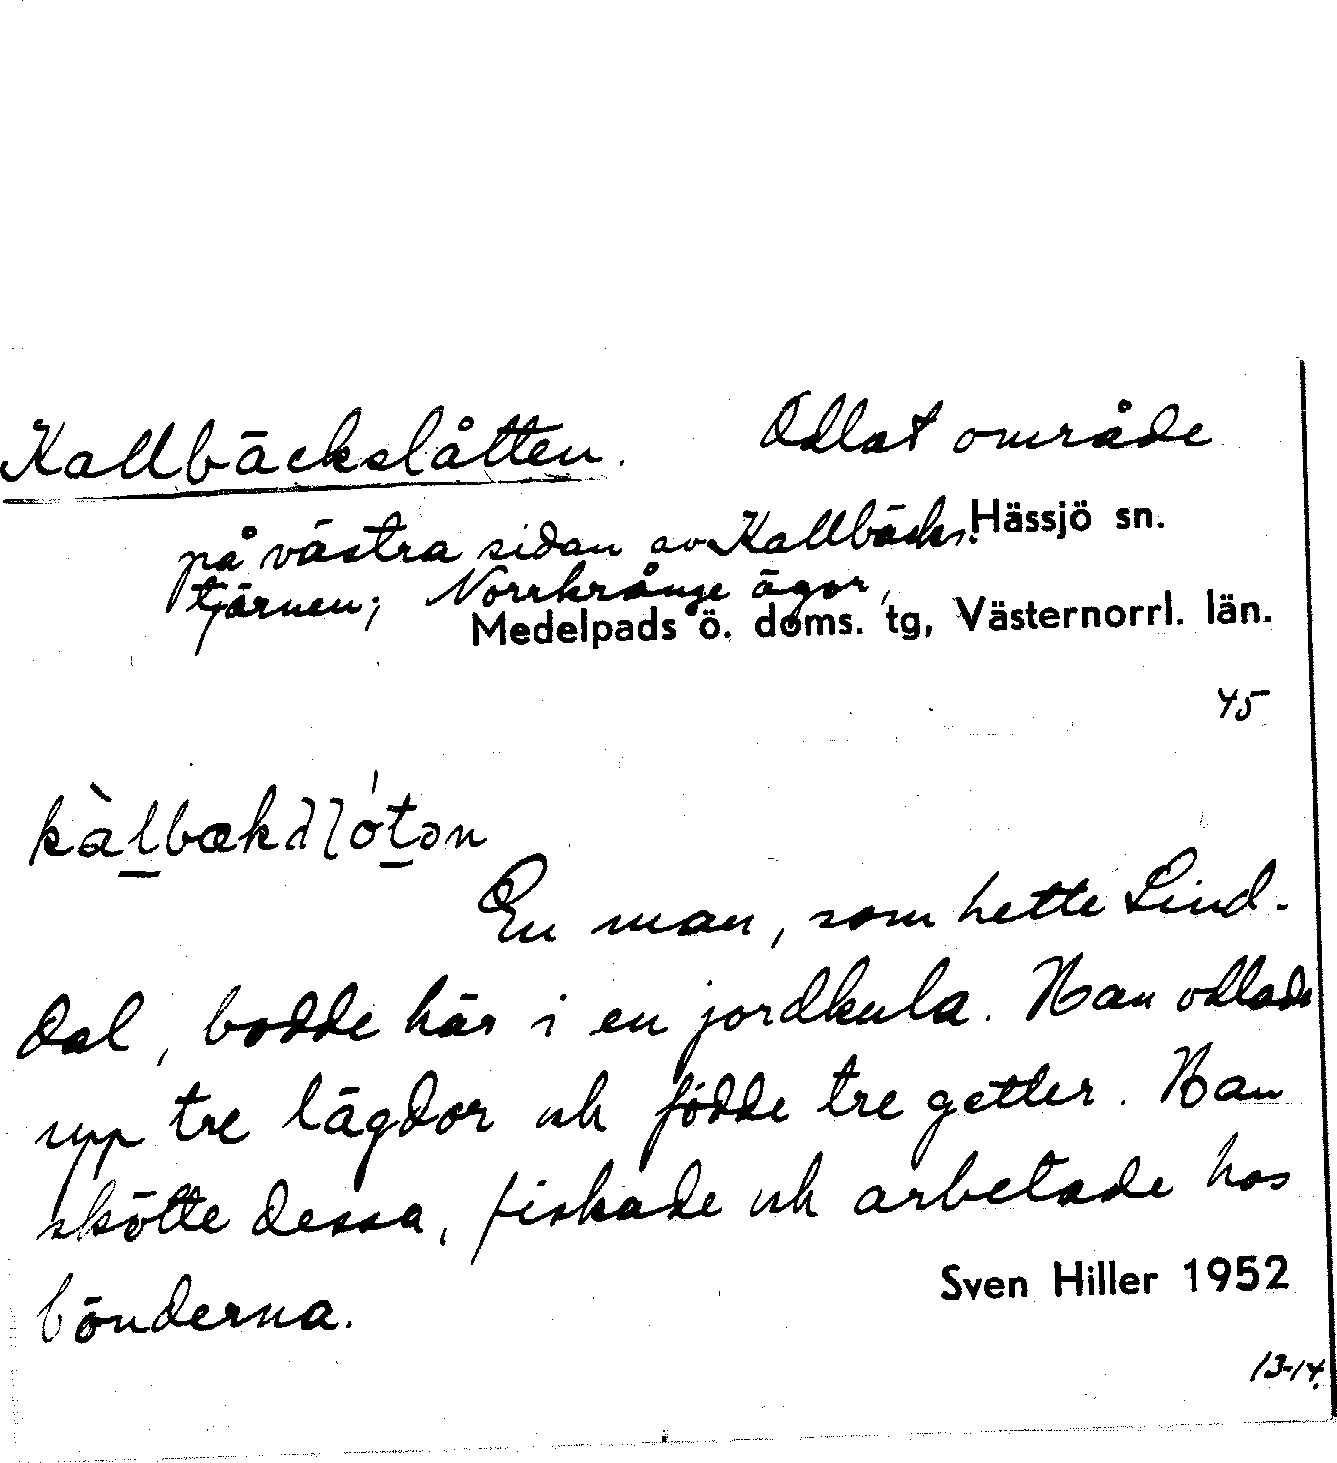 Kallbäckslåtten. Odlat område
på västra sidan av Kallbäcks- Hässjö sn.
tjärnen; Norrkrånge ägor,
Medelpads ö. doms. tg, Västernorrl. län.
45
En man, som hette Lind-
dal, bodde här i en jordkula. Han odlade
upp tre lägdor och födde tre getter. Han
skötte dessa, fiskade och arbetade hos
bönderna.
Sven Hiller 1952
13-14.